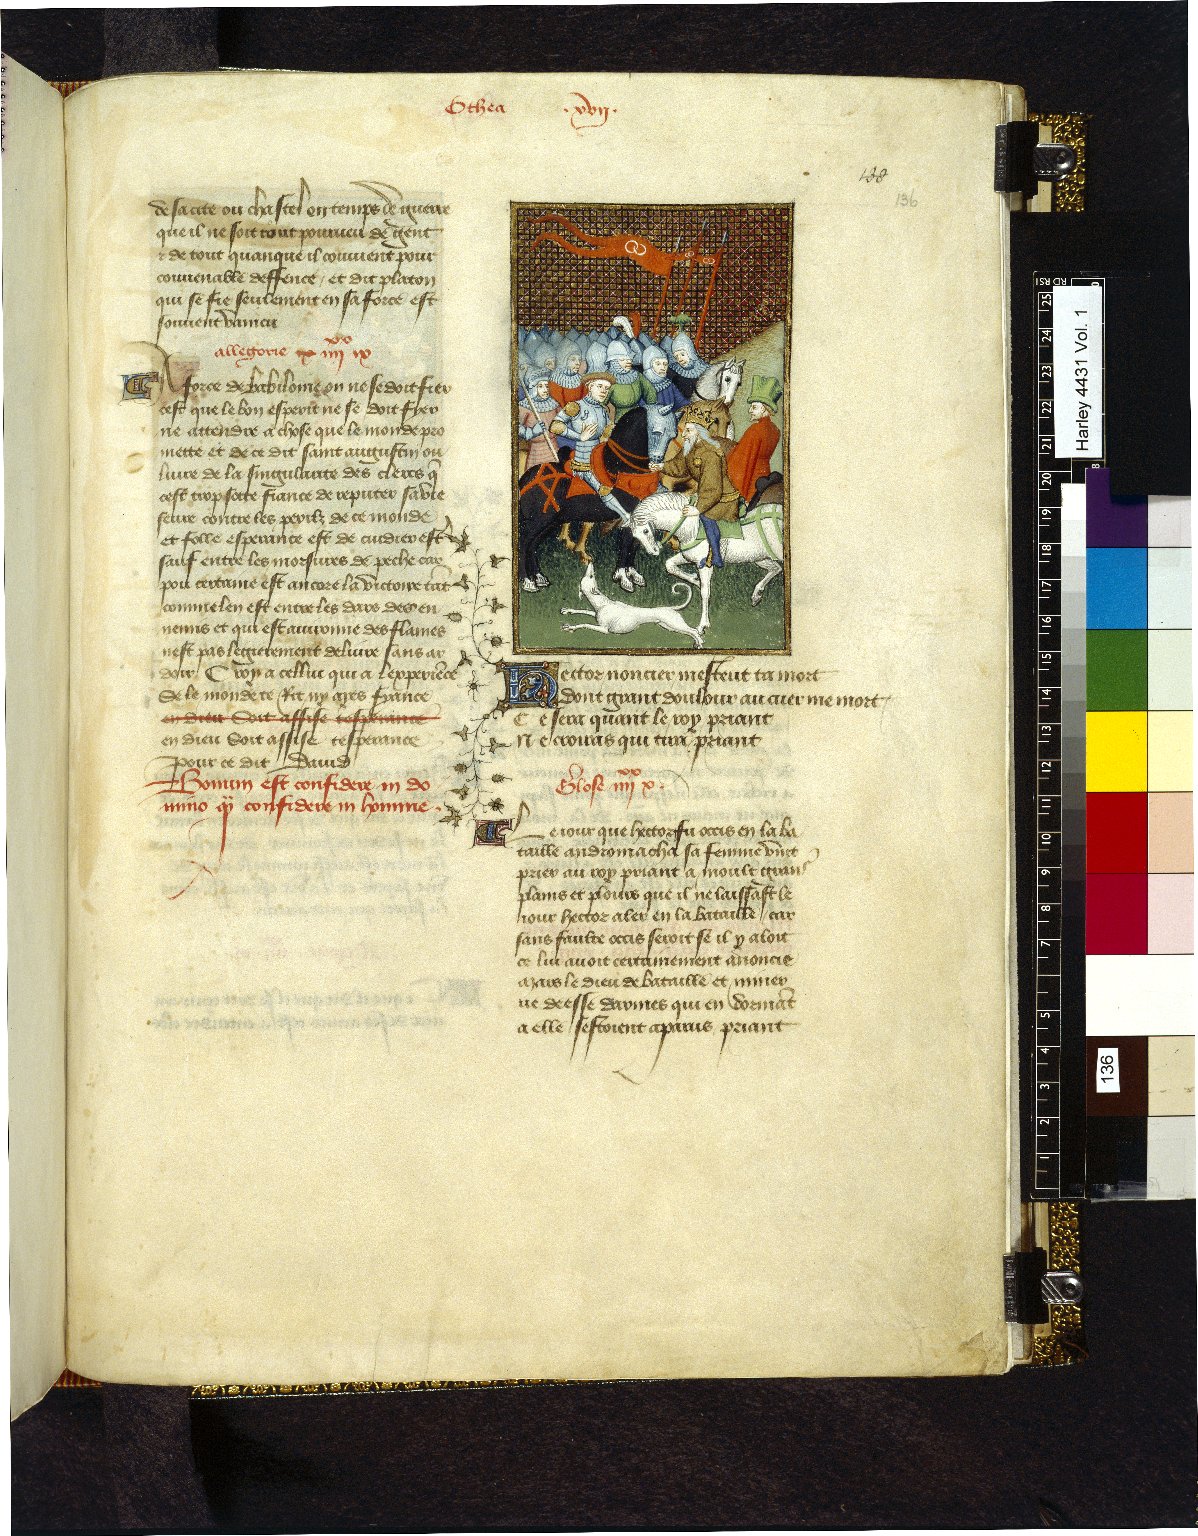 Othea .xvij.
138
136
de sa cite ou chastel on temps de guerre
que il ne soit tout pourueu de gent
et de tout quanque il conuient pour
conuenable deffence / et dit platon
qui se fie seulement en sa force est
souuent vaincu
allegorie iiijxx ix
A force de babiloine on ne se doit fier
cest que le bon esperit ne se doit fyer
ne attendre a chose que le monde pro
mette et de ce dit saint augustin ou
liure de la singularite des clercs q
cest trop sotte fiance de reputer sa vie
seure contre les perilz de ce monde
et folle esperance est de cuidier est
sauf entre les morsures de peche car
pou certaine est ancore la victoire tāt
comme len est entre les dars des en
nemis et qui est auironne des flames
nest pas legierement deliure sans ar
doir / Croy a cellui qui a lexperiēce
Se le monde te rit ny ayes fiance
en dieu Soit assise tesperance
en dieu Soit assise tesperance
Pour ce dit Dauid
Bonum est confidere in do
mino q̄ confidere in homine .
Hector noncier mesteut ta mort
Dont grant doulour au cuer me mort
Ce sera quant le roy priant
Ne crouras qui tira priant
Glose iiijxx x .
Le iour que hector fu occis en la ba
taille andromacha sa femme vint
prier au roy priant a moult grans
plains et plours que il ne laissast le
iour hector aler en la bataille / car
sans faulte occis seroit se il y aloit
ce lui auoit certainement anoncie
Mars le dieu de bataille et miner
ue deesse darmes qui en dormāt
a elle sestoient aparus priant
Harley 4431 Vol. 1
136